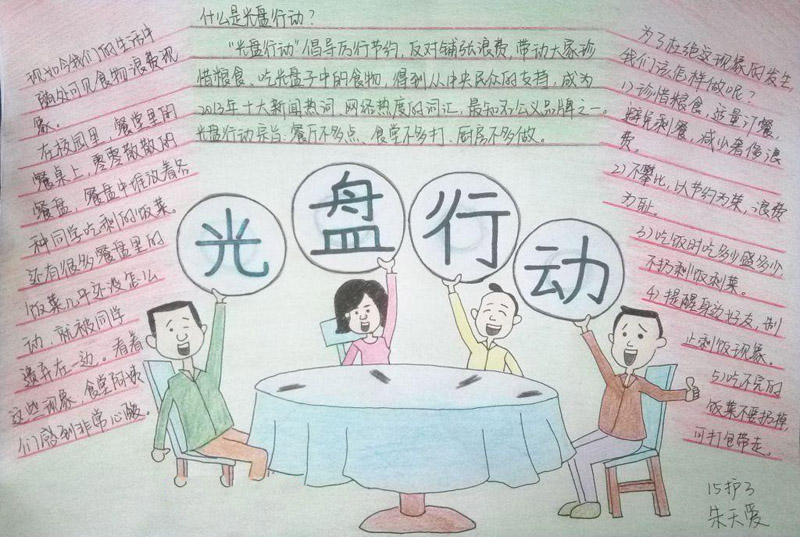 什么是光盘行动？
“光盘行动”倡导厉行节约，反对铺张浪费，带动大家珍
惜粮食、吃光盘子中的食物，得到从中央民众的支持，成为
2013年十大新闻热词、网络热度的词汇，最知名公义品牌之一。
光盘行动宗旨：餐厅不多点、食堂不多打、厨房不多做。
现如今我们的生活中
随处可见食物浪费现
象。
在校园里，餐堂里的
餐桌上，零零散散的
餐盘，餐盘中堆放着各
种同学吃剩的饭菜。
还有很多餐盘里的
饭菜几乎还没怎么
动，就被同学
遗弃在一边。看着
这些现象，食堂阿姨
们感到非常心酸。
光
盘
行
动
为了杜绝这现象的发生，
我们该怎样做呢？
1）珍惜粮食，适量订餐，
避免剩餐，减少奢侈浪
费。
2）不攀比，以节约为荣，浪费
为耻。
3）吃饭时吃多少盛多少
不扔剩饭剩菜。
4）提醒身边好友，制
止剩饭现象。
5）吃不完的
饭菜不要扔掉
可打包带走。
15护3
朱天爱